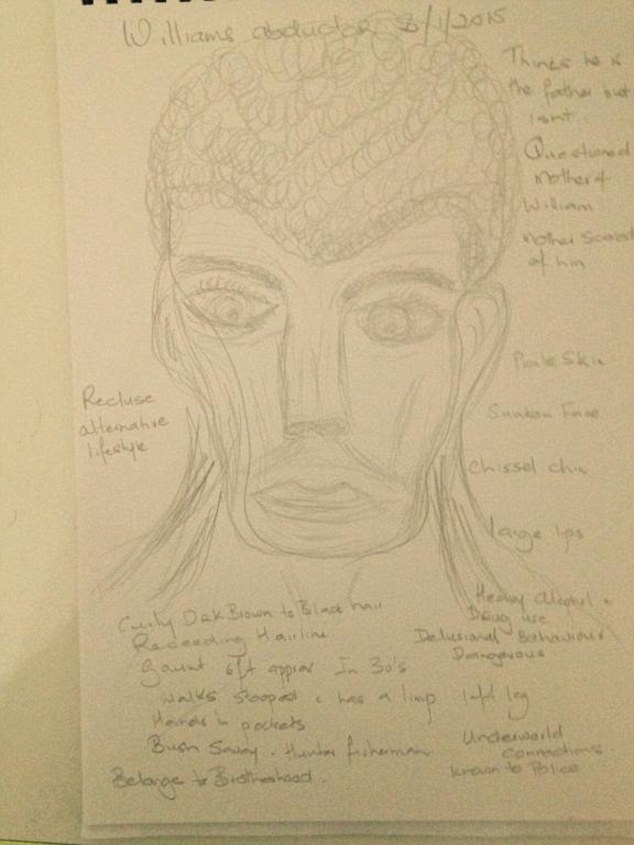 Williams abductor 8/1/2015
Thinks he is
the father but
isnt.
Questioned
Mother &
William
Mother Scared
of him
Pale Skin
Sunken Face
Chissel chin
Large lips
Recluse
alternative
lifestyle
Curly Dark Brown to Black hair
Receeding Hairline
Gaunt 6ft approx In 30's
Walks stooped & has a limp left leg
Hands in pockets
Bush Savay. Hunter fisherman
Belongs to Brotherhood.
Heavy Alcohol &
Drug use
Delusional Behaviour
Dangerous
Underworld
Connections
Known to Police